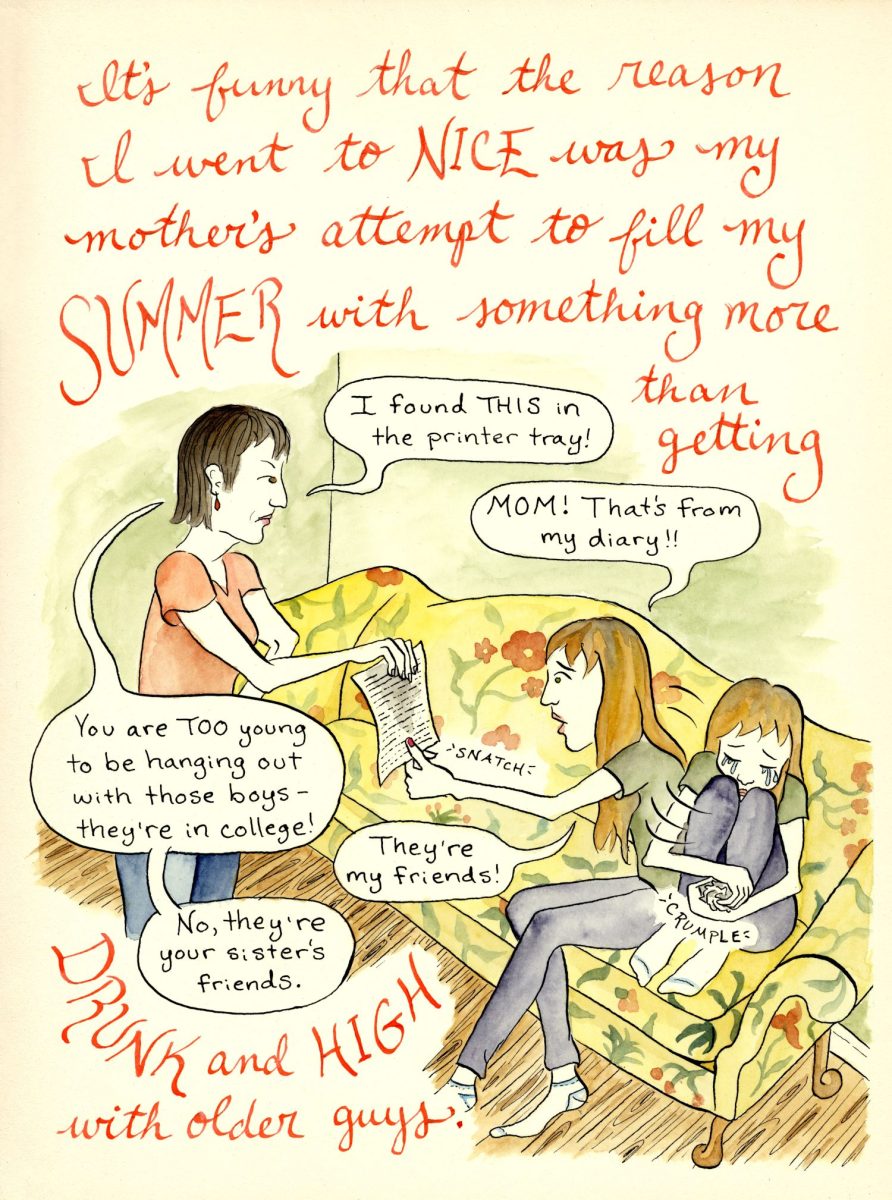 It's funny that the reason
I went to NICE was my
mother's attempt to fill my
SUMMER with something more
than
getting
I found THIS in
the printer tray!
MOM! That's from
my diary!!
SNATCH
You are TOO young
to be hanging out
with those boys -
they're in college!
They're
my friends!
No, they're
your sister's
friends.
CRUMPLE
DRUNK and HIGH
with older guys.